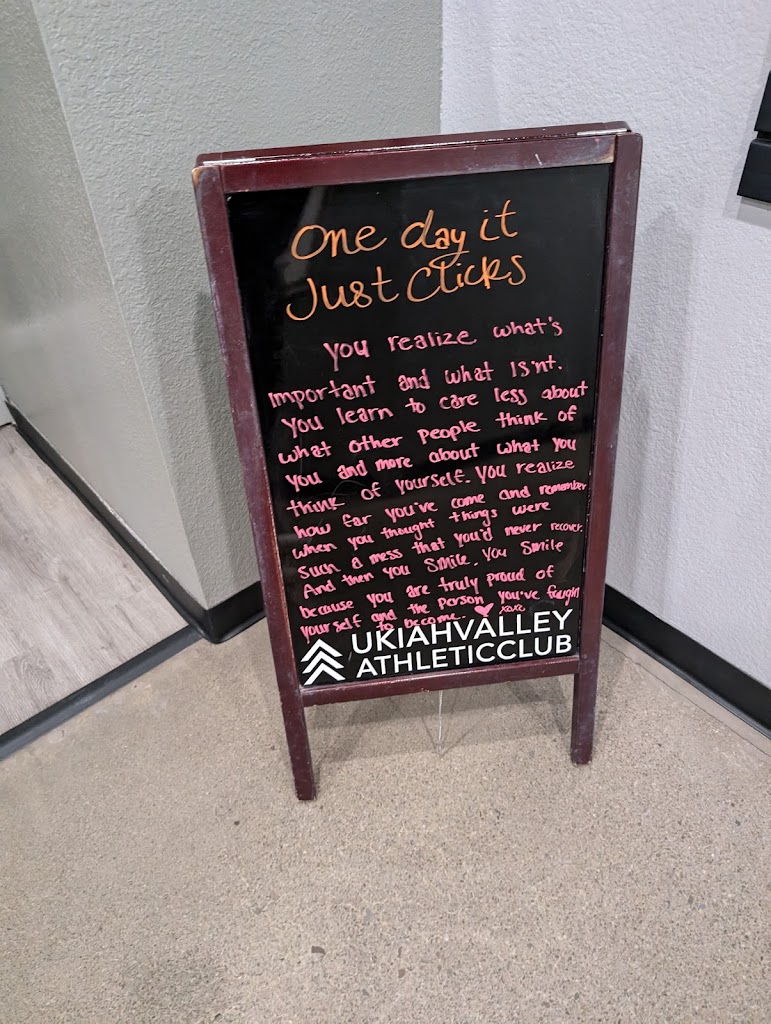 One day it
Just Clicks
You realize what's
important and what Is'nt.
You learn to care less about
what other people think of
you and more about what you
think of yourself. You realize
how far you've come and remember
when you thought things were
such a mess that you'd never recover.
And then you smile, you smile
because you are truly proud of
yourself and the person you've fought
to become. ♥ xoxo
UKIAHVALLEY
ATHLETICCLUB